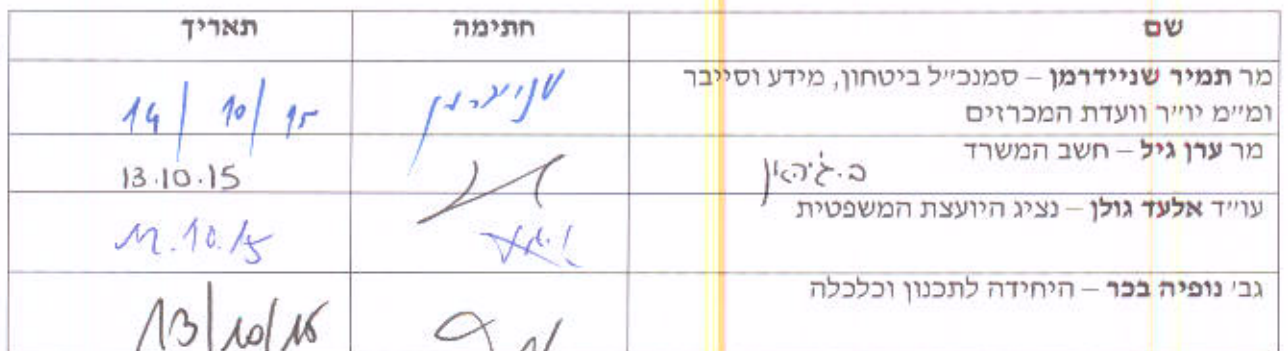 שם חתימה תאריך
מר תמיר שניידרמן – סמנכ״ל ביטחון, מידע וסייבר
ומ״מ יו״ר וועדת המכרזים
שניידרמן 14/10/15
מר ערן גיל – חשב המשרד
13.10.15
עו״ד אלעד גולן – נציג היועצת המשפטית
גב׳ נופיה בכר – היחידה לתכנון וכלכלה
13/10/15